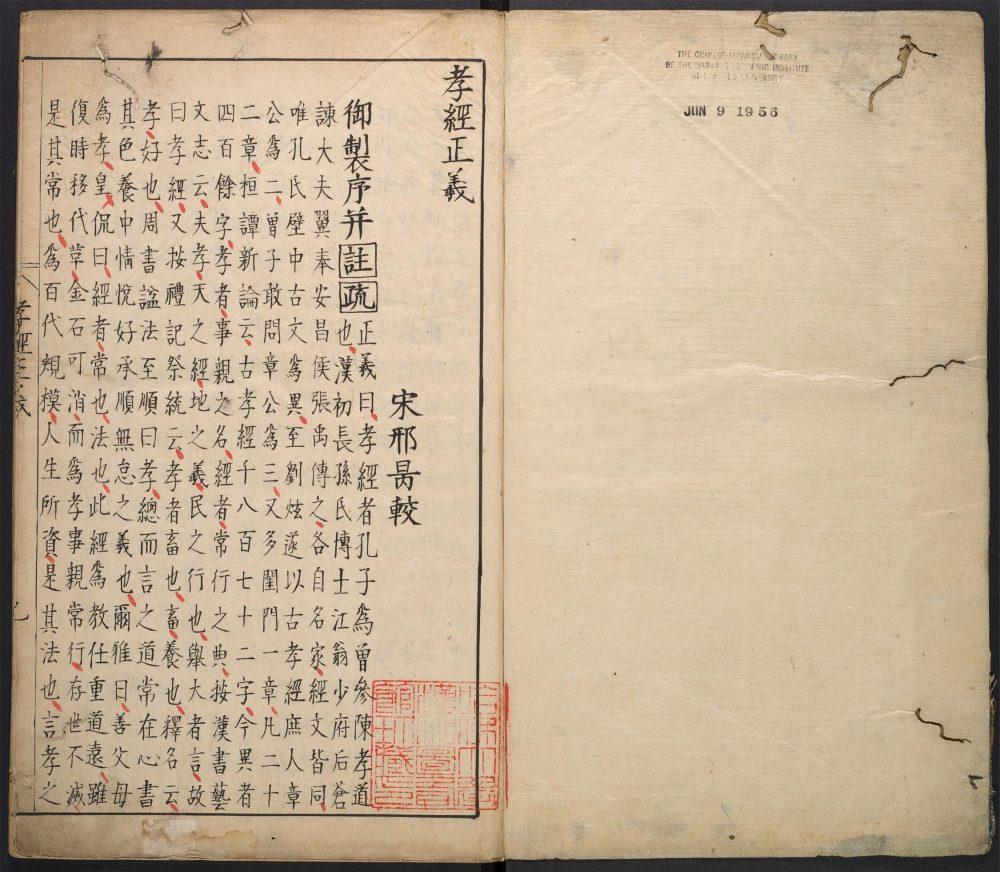 THE CHINESE-JAPANESE LIBRARY
OF THE HARVARD-YENCHING INSTITUTE
AT HARVARD UNIVERSITY
JUN 9 1956
孝經正義
宋邢昺較
御製序并註疏
正義曰孝經者孔子爲曾參陳孝道
也漢初長孫氏博士江翁少府后蒼
諫大夫翼奉安昌侯張禹傳之各自名家經文皆同
唯孔氏壁中古文爲異至劉炫遂以古孝經庶人章
公爲二曾子敢問章公爲三又多閨門一章凡二十
二章桓譚新論云古孝經千八百七十二字今異者
四百餘字孝者事親之名經者常行之典按漢書藝
文志云夫孝天之經地之義民之行也舉大者言故
曰孝經又按禮記祭統云孝者畜也畜養也釋名云
孝好也周書諡法至順曰孝總而言之道常在心書
其色養中情悅好承順無怠之義也爾雅曰善父母
爲孝皇侃曰經者常也法也此經爲教任重道遠雖
復時移代草金石可消而爲孝事親常行存世不滅
是其常也爲百代規模人生所資是其法也言孝之
孝經正義